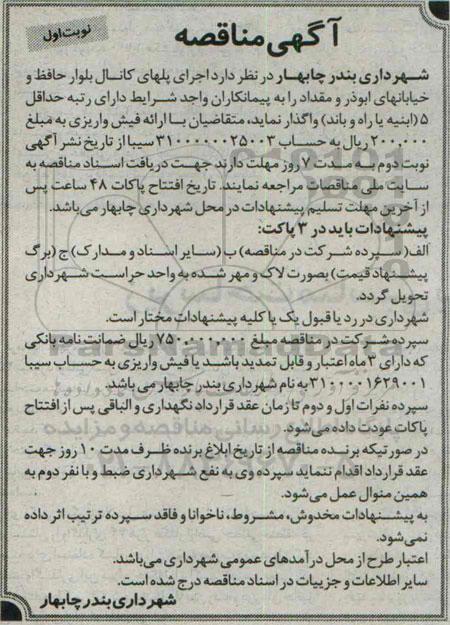 آگهی مناقصه
نوبت اول
شهرداری بندر چابهار در نظر دارد اجرای پلهای کانال بلوار حافظ و
خیابانهای ابوذر و مقداد را به پیمانکاران واجد شرایط دارای رتبه حداقل
۵ (ابنیه یا راه و باند) واگذار نماید، متقاضیان با ارائه فیش واریزی به مبلغ
۲۰۰,۰۰۰ ریال به حساب ۳۱۰۰۰۰۰۰۲۵۰۰۳ سیبا از تاریخ نشر آگهی
نوبت دوم به مدت ۷ روز مهلت دارند جهت دریافت اسناد مناقصه به
سایت ملی مناقصات مراجعه نمایند. تاریخ افتتاح پاکات ۴۸ ساعت پس
از آخرین مهلت تسلیم پیشنهادات در محل شهرداری چابهار می‌باشد.
پیشنهادات باید در ۳ پاکت:
الف (سپرده شرکت در مناقصه) ب (سایر اسناد و مدارک) ج (برگ
پیشنهاد قیمت) بصورت لاک و مهر شده به واحد حراست شهرداری
تحویل گردد.
شهرداری در رد یا قبول یک یا کلیه پیشنهادات مختار است.
سپرده شرکت در مناقصه مبلغ ۷۵۰۰۰۰۰۰۰ ریال ضمانت نامه بانکی
که دارای ۳ ماه اعتبار و قابل تمدید باشد یا فیش واریزی به حساب سیبا
۳۱۰۰۰۰۱۶۲۹۰۰۱ به نام شهرداری بندر چابهار می باشد.
سپرده نفرات اول و دوم تا زمان عقد قرارداد نگهداری و الباقی پس از افتتاح
پاکات عودت داده می‌شود.
در صورتیکه برنده مناقصه از تاریخ ابلاغ برنده ظرف مدت ۱۰ روز جهت
عقد قرارداد اقدام ننماید سپرده وی به نفع شهرداری ضبط و با نفر دوم به
همین منوال عمل می‌شود.
به پیشنهادات مخدوش، مشروط، ناخوانا و فاقد سپرده ترتیب اثر داده
نمی‌شود.
اعتبار طرح از محل درآمدهای عمومی شهرداری می‌باشد.
سایر اطلاعات و جزییات در اسناد مناقصه درج شده است.
شهرداری بندر چابهار